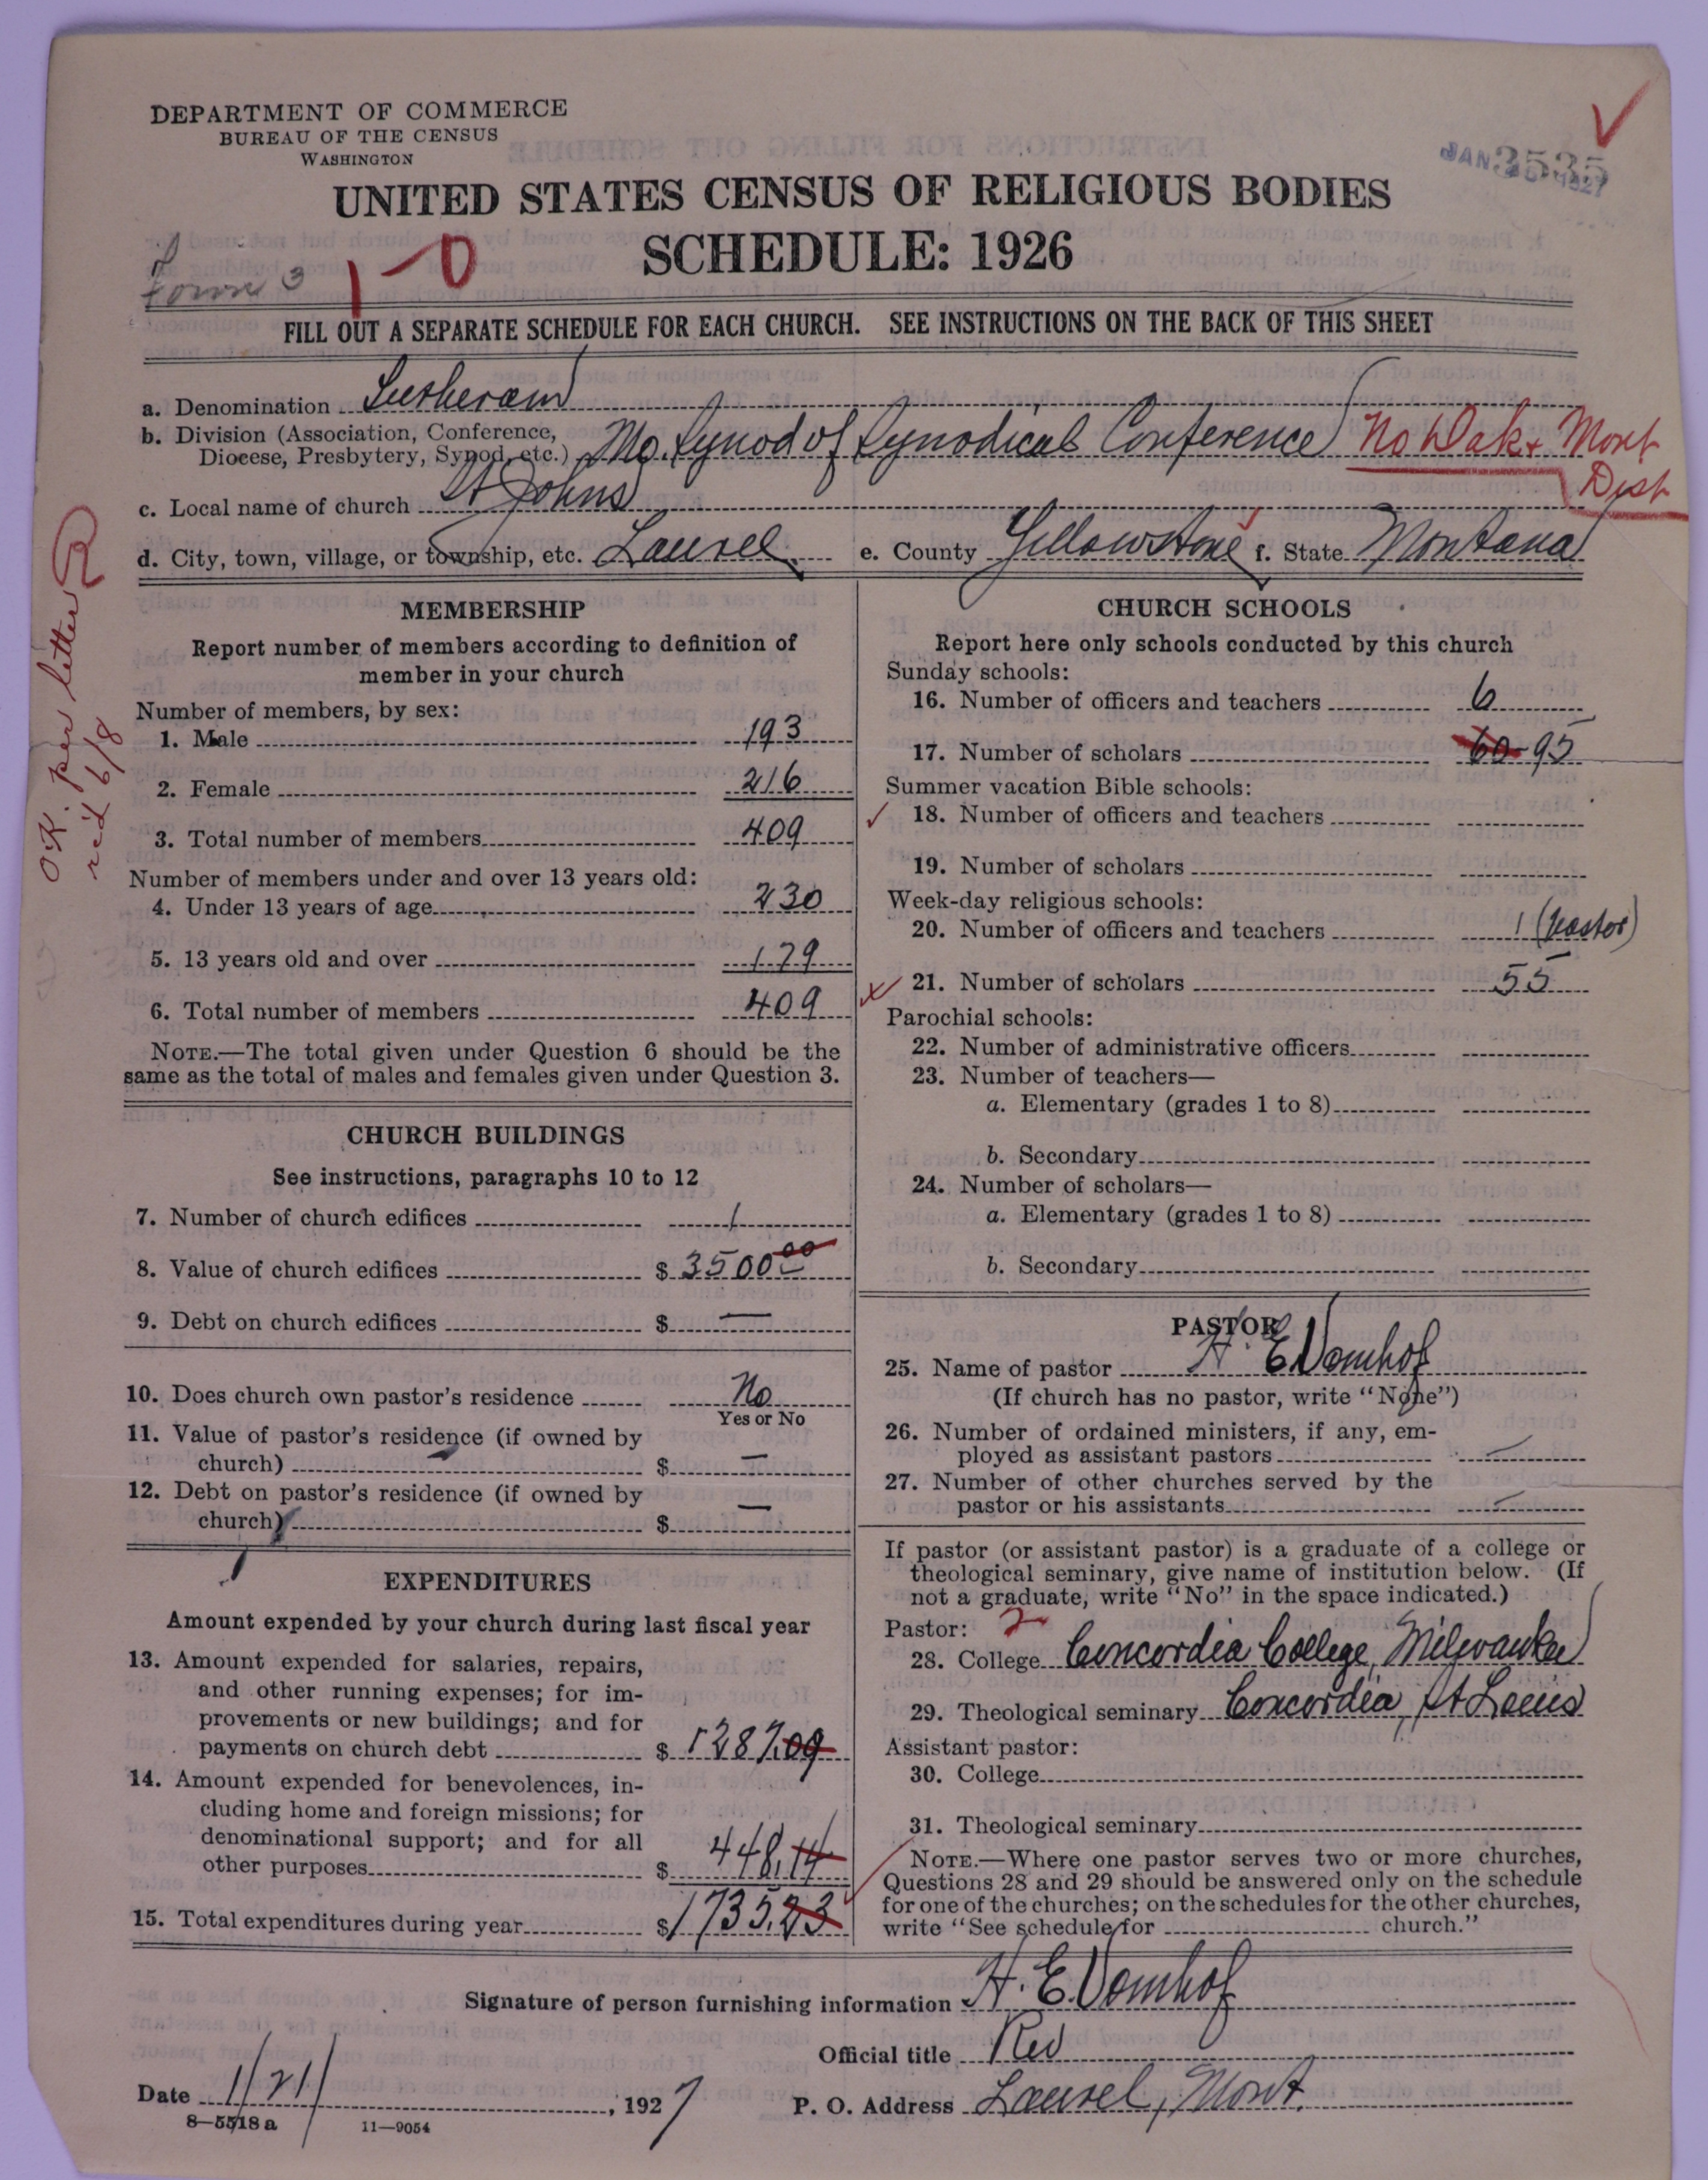 DEPARTMENT OF COMMERCE
BUREAU OF THE CENSUS
WASHINGTON
JAN 3535 1927
UNITED STATES CENSUS OF RELIGIOUS BODIES
SCHEDULE: 1926
Town 3
1-0
FILL OUT A SEPARATE SCHEDULE FOR EACH CHURCH. SEE INSTRUCTIONS ON THE BACK OF THIS SHEET
a. Denomination Lutheran
b. Division (Association, Conference, Diocese, Presbytery, Synod, etc.) Mo. Synod of Synodical Conference No Dak & Mont Dist
c. Local name of church St Johns
d. City, town, village, or township, etc. Laurel e. County Yellowstone f. State Montana
O.K. per letter
rec'd 6/8
MEMBERSHIP
Report number of members according to definition of
member in your church
Number of members, by sex:
1. Male 193
2. Female 216
3. Total number of members 409
Number of members under and over 13 years old:
4. Under 13 years of age 230
5. 13 years old and over 179
6. Total number of members 409
NOTE.—The total given under Question 6 should be the
same as the total of males and females given under Question 3.
CHURCH BUILDINGS
See instructions, paragraphs 10 to 12
7. Number of church edifices 1
8. Value of church edifices $ 3500 00
9. Debt on church edifices $ —
10. Does church own pastor's residence No
Yes or No
11. Value of pastor's residence (if owned by
church) $ —
12. Debt on pastor's residence (if owned by
church) $ —
EXPENDITURES
Amount expended by your church during last fiscal year
13. Amount expended for salaries, repairs,
and other running expenses; for im-
provements or new buildings; and for
payments on church debt $ 1287.09
14. Amount expended for benevolences, in-
cluding home and foreign missions; for
denominational support; and for all
other purposes $ 448.14
15. Total expenditures during year $ 1735.23
CHURCH SCHOOLS
Report here only schools conducted by this church
Sunday schools:
16. Number of officers and teachers 6
17. Number of scholars 60 95
Summer vacation Bible schools:
18. Number of officers and teachers
19. Number of scholars
Week-day religious schools:
20. Number of officers and teachers 1 (pastor)
21. Number of scholars 55
Parochial schools:
22. Number of administrative officers
23. Number of teachers—
a. Elementary (grades 1 to 8)
b. Secondary
24. Number of scholars—
a. Elementary (grades 1 to 8)
b. Secondary
PASTOR
25. Name of pastor H. E. Vomhof
(If church has no pastor, write "None")
26. Number of ordained ministers, if any, em-
ployed as assistant pastors —
27. Number of other churches served by the
pastor or his assistants —
If pastor (or assistant pastor) is a graduate of a college or
theological seminary, give name of institution below. (If
not a graduate, write "No" in the space indicated.)
Pastor: 2
28. College Concordia College, Milwaukee
29. Theological seminary Concordia, St Louis
Assistant pastor:
30. College
31. Theological seminary
NOTE.—Where one pastor serves two or more churches,
Questions 28 and 29 should be answered only on the schedule
for one of the churches; on the schedules for the other churches,
write "See schedule for church."
Signature of person furnishing information H. E. Vomhof
Official title Rev
Date 1/21/, 1927 P. O. Address Laurel, Mont.
8—5518 a 11—9054